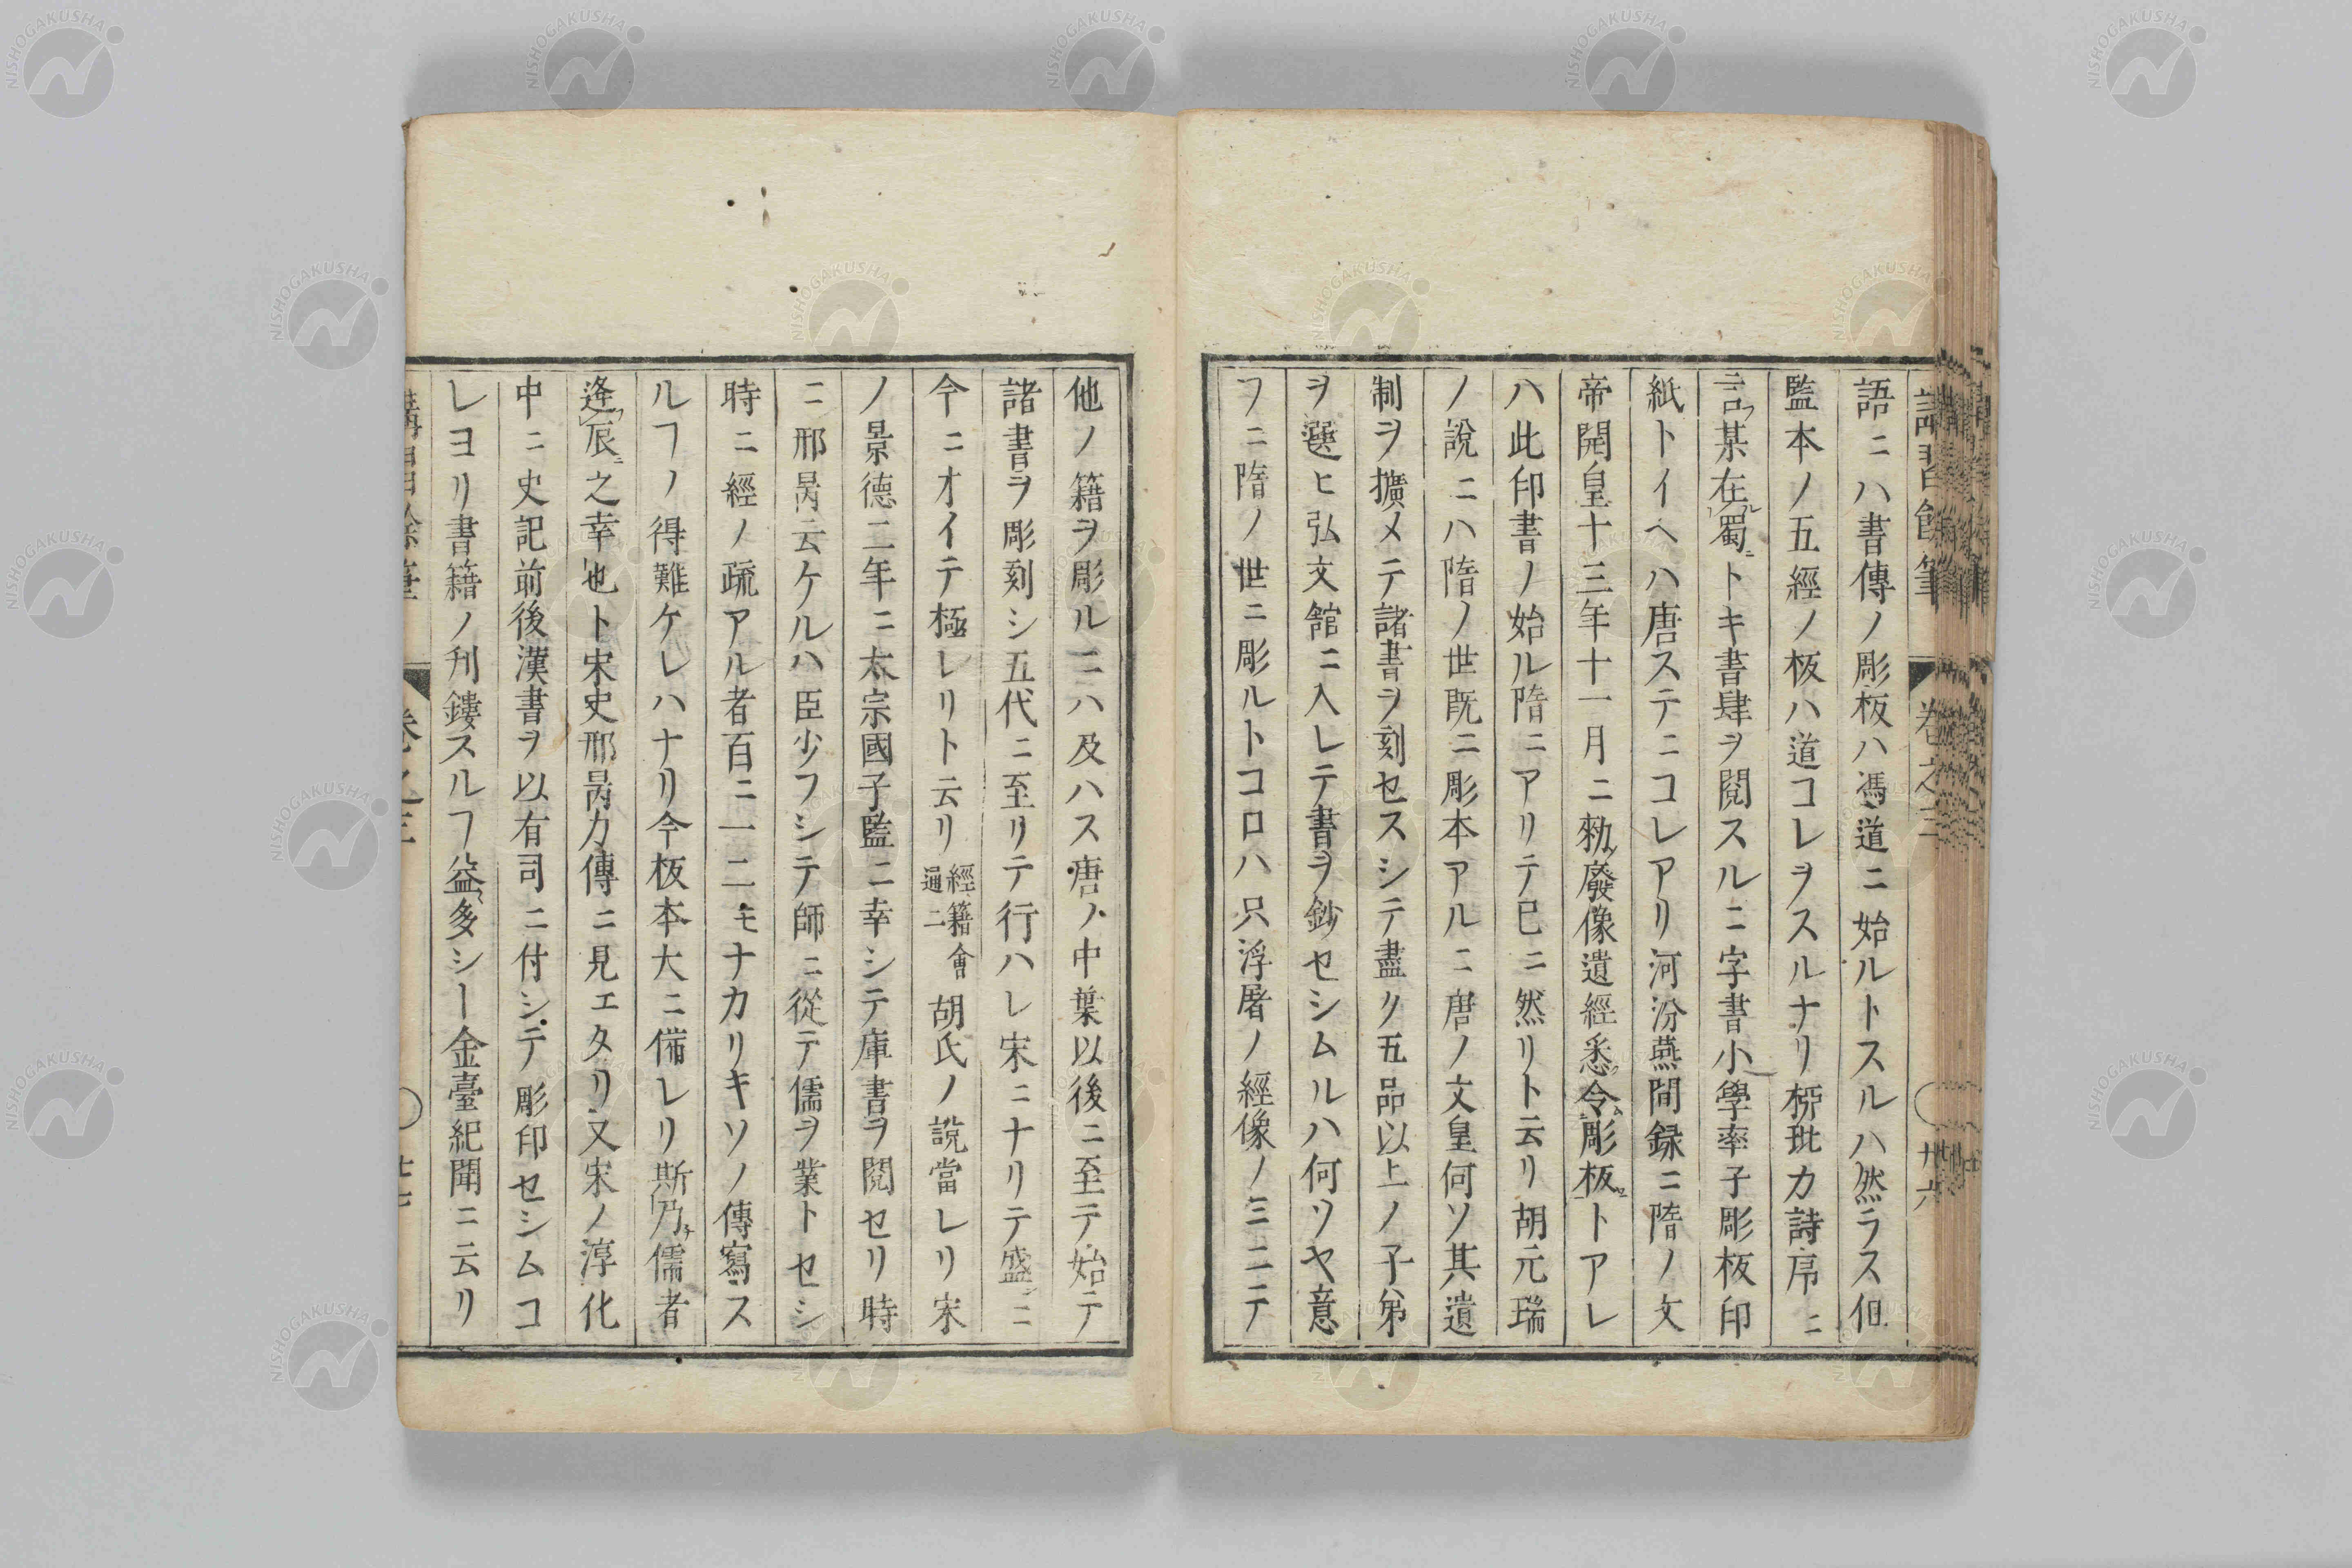 講習餘筆 卷之三 廿六
語ニハ書傳ノ彫板ハ馮道ニ始ルトスルハ然ラス但
監本ノ五經ノ板ハ道コレヲスルナリ栁玭カ詩序ニ
言フ某在ルﾄ蜀ニトキ書肆ヲ閱スルニ字書小學率子彫板印
紙トイヘハ唐ステニコレアリ河汾燕間録ニ隋ノ文
帝開皇十三年十一月ニ勅廢像遺經悉令彫板トアレ
ハ此印書ノ始ル隋ニアリテ已ニ然リト云リ胡元瑞
ノ說ニハ隋ノ世既ニ彫本アルニ唐ノ文皇何ソ其遺
制ヲ擴メテ諸書ヲ刻セスシテ盡ク五品以上ノ子弟
ヲ選ヒ弘文館ニ入レテ書ヲ鈔セシムルハ何ソヤ意
フニ隋ノ世ニ彫ルトコロハ只浮屠ノ經像ノミニテ
他ノ籍ヲ彫ルニハ及ハス唐ノ中葉以後ニ至テ始テ
諸書ヲ彫刻シ五代ニ至リテ行ハレ宋ニナリテ盛ニ
今ニオイテ極レリト云リ 經籍會通二 胡氏ノ說當レリ宋
ノ景德二年ニ太宗國子監ニ幸シテ庫書ヲ閱セリ時
ニ邢昺云ケルハ臣少フシテ師ニ從テ儒ヲ業トセシ
時ニ經ノ疏アル者百ニ一二モナカリキソノ傳寫ス
ルヿノ得難ケレハナリ今板本大ニ備レリ斯乃儒者
逢辰之幸也ト宋史邢昺カ傳ニ見エタリ又宋ノ淳化
中ニ史記前後漢書ヲ以有司ニ付シテ彫印セシムコ
レヨリ書籍ノ刋鏤スルヿ益多シー金臺紀聞ニ云リ
講習餘筆 卷之三 廿七